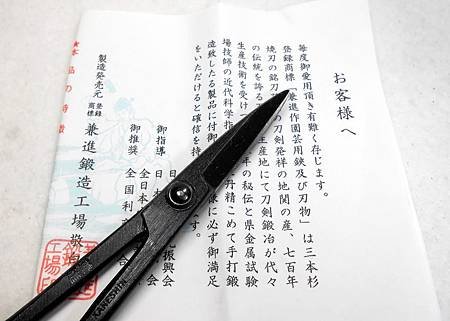 お客様へ
毎度御愛用頂き有難く存じます。
登録商標「兼進作園芸用鋏及び刃物」は三本杉
焼刃の銘刀 の刀剣発祥の地関の産、七百年
の伝統を誇る 生産地にて刀剣鍛冶が代々
生産技術を受け 年の秘伝と県金属試験
場技師の近代科学指 丹精こめて手打鍛
造致したる製品に付御 様に必ず御満足
をいただけると確信を持 す。
御指導 日 振興会
全日本 会
御推奨 全国利
製造発売元 登録商標 兼進鍛造工場敬白
本品の特徴
KANESHIN